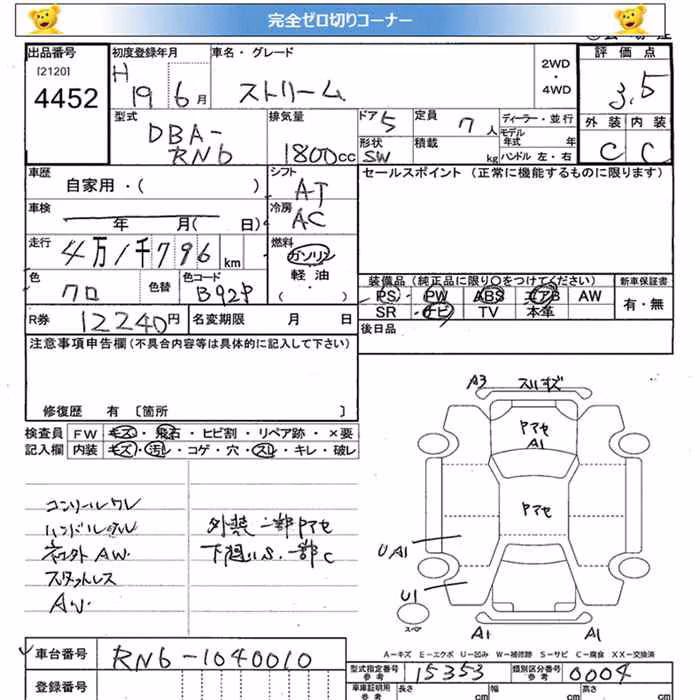 完全ゼロ切りコーナー
出品番号
[2120]
4452
初度登録年月
H 19 6 月
車名・グレード
ストリーム
2WD
・
4WD
評価点
3.5
外装 内装
C C
型式
DBA-
RN6
排気量
1800cc
ドア 5
形状
SW
定員 7 人
積載 kg
ディーラー・並行
モデル
年式 年
ハンドル 左・右
車歴
自家用・( )
シフト
AT
セールスポイント (正常に機能するものに限ります)
車検
年 月( 日)
冷房
AC
走行
4万1千796 km
燃料
ガソリン
軽油
( ・ )
色
クロ
色替
色コード
B92P
装備品 (純正品に限り○をつけてください)
PS PW ABS エアB AW
SR ナビ TV 本革
新車保証書
有・無
R券 12240円
名変期限 月 日
後日品
注意事項申告欄(不具合内容等は具体的に記入して下さい)
修復歴 有 [箇所 ]
検査員
記入欄
FW キズ・飛石・ヒビ割・リペア跡・×要
内装 キズ・汚レ・コゲ・穴・スレ・キレ・破レ
コンソールワレ
ハンドルスレ
社外AW.
スタットレス
AW.
外装一部ヤマセ
下廻りS.一部C
A3 スリキズ
ヤマセ
A1
ヤマセ
UA1
U1
スペア
A1 A1
A-キズ E-エクボ U-凹み W-補修跡 S-サビ C-腐食 XX-交換済
車台番号
RN6-1040010
型式指定番号
参考
15353
類別区分番号
参考
0004
登録番号
車庫証明用
参考
長さ cm
幅 cm
高さ cm